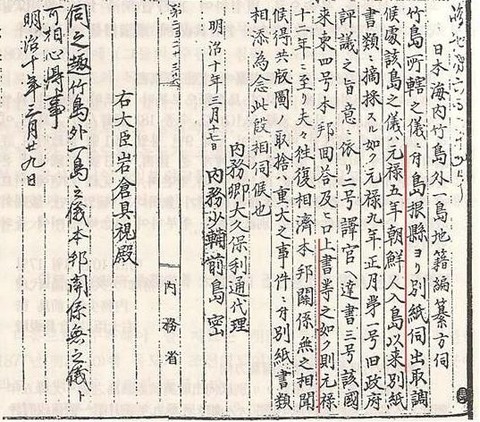 日本海内竹島外一島地籍編纂方伺
竹島所轄之儀ニ付島根縣ヨリ別紙伺出取調
候處該島之儀ハ元禄五年朝鮮人入島以来別紙
書類ニ摘採スル如ク元禄九年正月第一号旧政府
評議之旨意ニ依リ二号譯官ヘ達書三号該國
来柬四号本邦回答及ヒ口上書等之如ク則元禄
十二年ニ至リ夫々往復相濟本邦関係無之相聞
候得共版圖ノ取捨ハ重大之事件ニ付別紙書類
相添為念此段相伺候也
明治十年三月十七日 内務少輔前島密
内務卿大久保利通代理
右大臣岩倉具視殿
内務省
伺之趣竹島外一島之儀本邦関係無之儀ト
可相心得事
明治十年三月廿九日